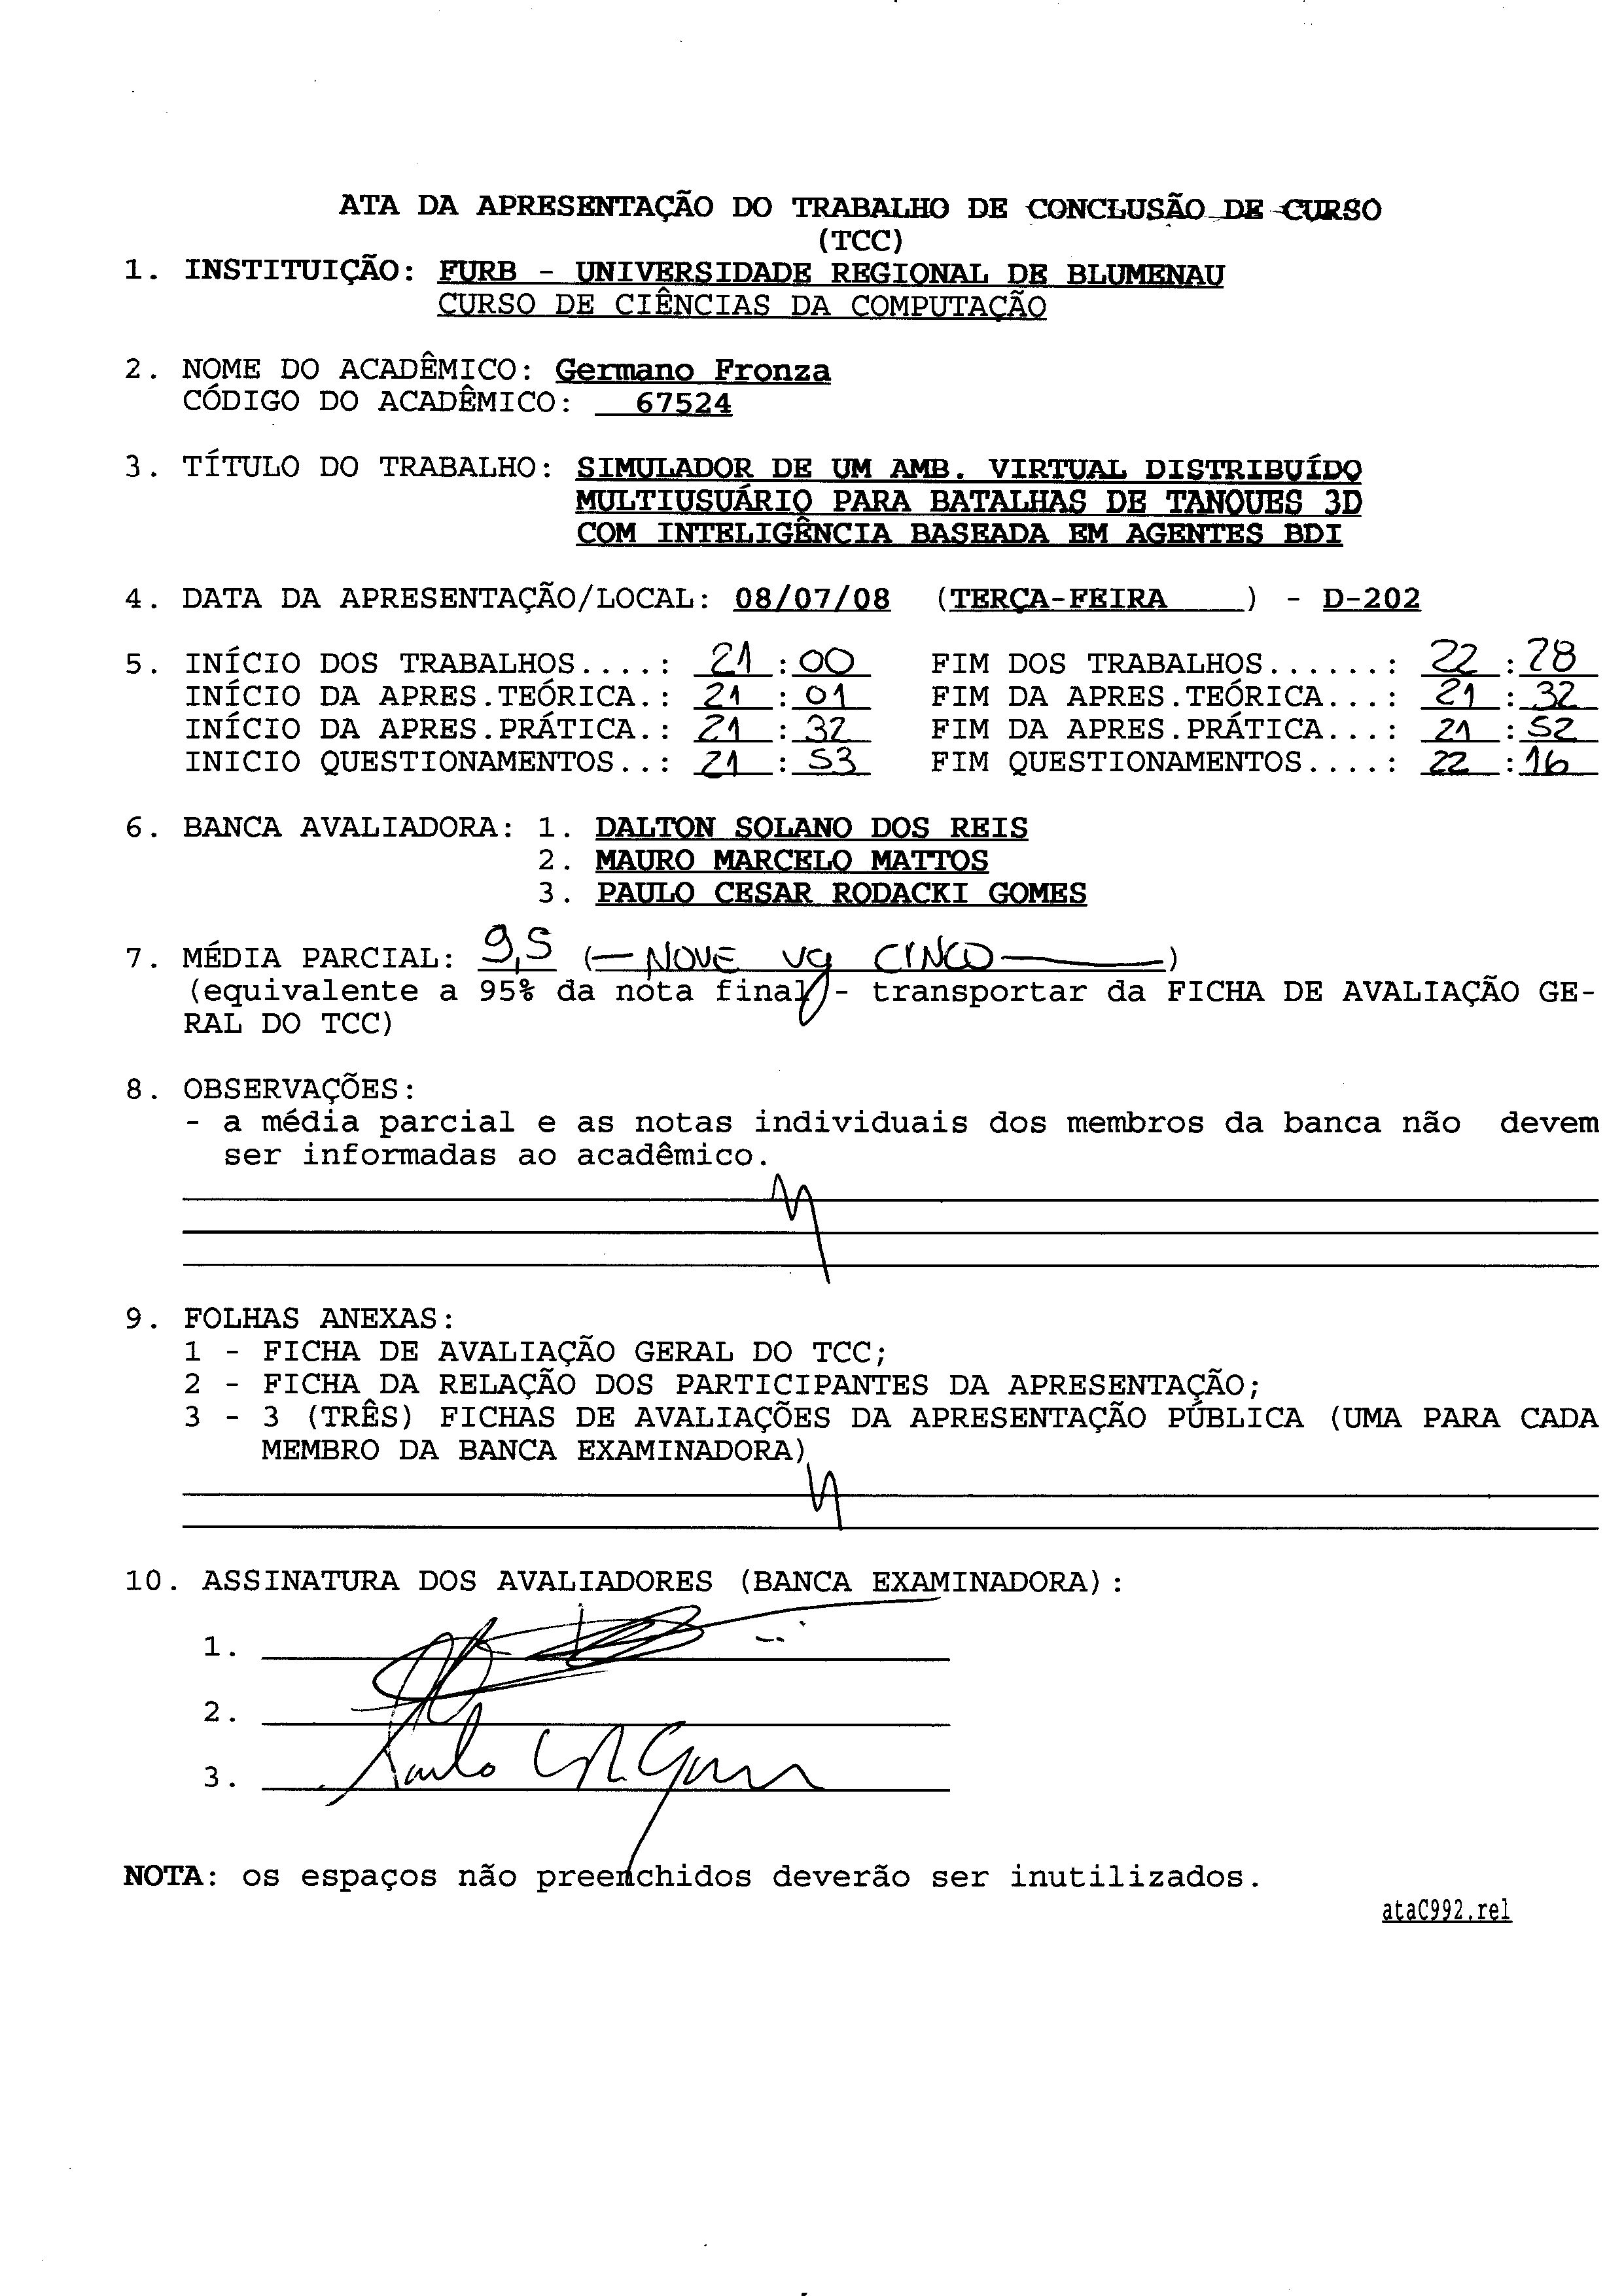 ATA DA APRESENTAÇÃO DO TRABALHO DE CONCLUSÃO DE CURSO
(TCC)
1. INSTITUIÇÃO: FURB - UNIVERSIDADE REGIONAL DE BLUMENAU
CURSO DE CIÊNCIAS DA COMPUTAÇÃO
2. NOME DO ACADÊMICO: Germano Fronza
CÓDIGO DO ACADÊMICO: 67524
3. TÍTULO DO TRABALHO: SIMULADOR DE UM AMB. VIRTUAL DISTRIBUÍDO
MULTIUSUÁRIO PARA BATALHAS DE TANQUES 3D
COM INTELIGÊNCIA BASEADA EM AGENTES BDI
4. DATA DA APRESENTAÇÃO/LOCAL: 08/07/08 (TERÇA-FEIRA ) - D-202
5. INÍCIO DOS TRABALHOS....: 21:00 FIM DOS TRABALHOS......: 22:28
INÍCIO DA APRES.TEÓRICA.: 21:01 FIM DA APRES.TEÓRICA...: 21:32
INÍCIO DA APRES.PRÁTICA.: 21:32 FIM DA APRES.PRÁTICA...: 21:52
INICIO QUESTIONAMENTOS..: 21:53 FIM QUESTIONAMENTOS....: 22:16
6. BANCA AVALIADORA: 1. DALTON SOLANO DOS REIS
2. MAURO MARCELO MATTOS
3. PAULO CESAR RODACKI GOMES
7. MÉDIA PARCIAL: 9,5 (— NOVE vg CINCO —)
(equivalente a 95% da nota final - transportar da FICHA DE AVALIAÇÃO GE-
RAL DO TCC)
8. OBSERVAÇÕES:
- a média parcial e as notas individuais dos membros da banca não devem
ser informadas ao acadêmico.
9. FOLHAS ANEXAS:
1 - FICHA DE AVALIAÇÃO GERAL DO TCC;
2 - FICHA DA RELAÇÃO DOS PARTICIPANTES DA APRESENTAÇÃO;
3 - 3 (TRÊS) FICHAS DE AVALIAÇÕES DA APRESENTAÇÃO PÚBLICA (UMA PARA CADA
MEMBRO DA BANCA EXAMINADORA)
10. ASSINATURA DOS AVALIADORES (BANCA EXAMINADORA):
1.
2.
3. Paulo
NOTA: os espaços não preenchidos deverão ser inutilizados.
ataC992.rel